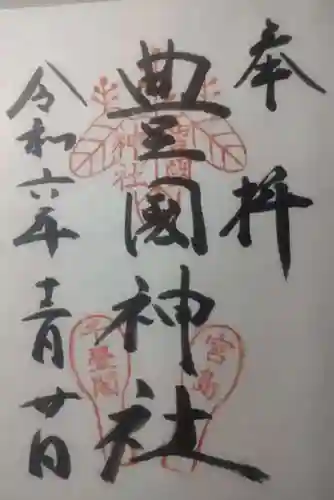 奉拝
豊國神社
令和六年十一月廿日
豊國神社
宮島
千畳閣